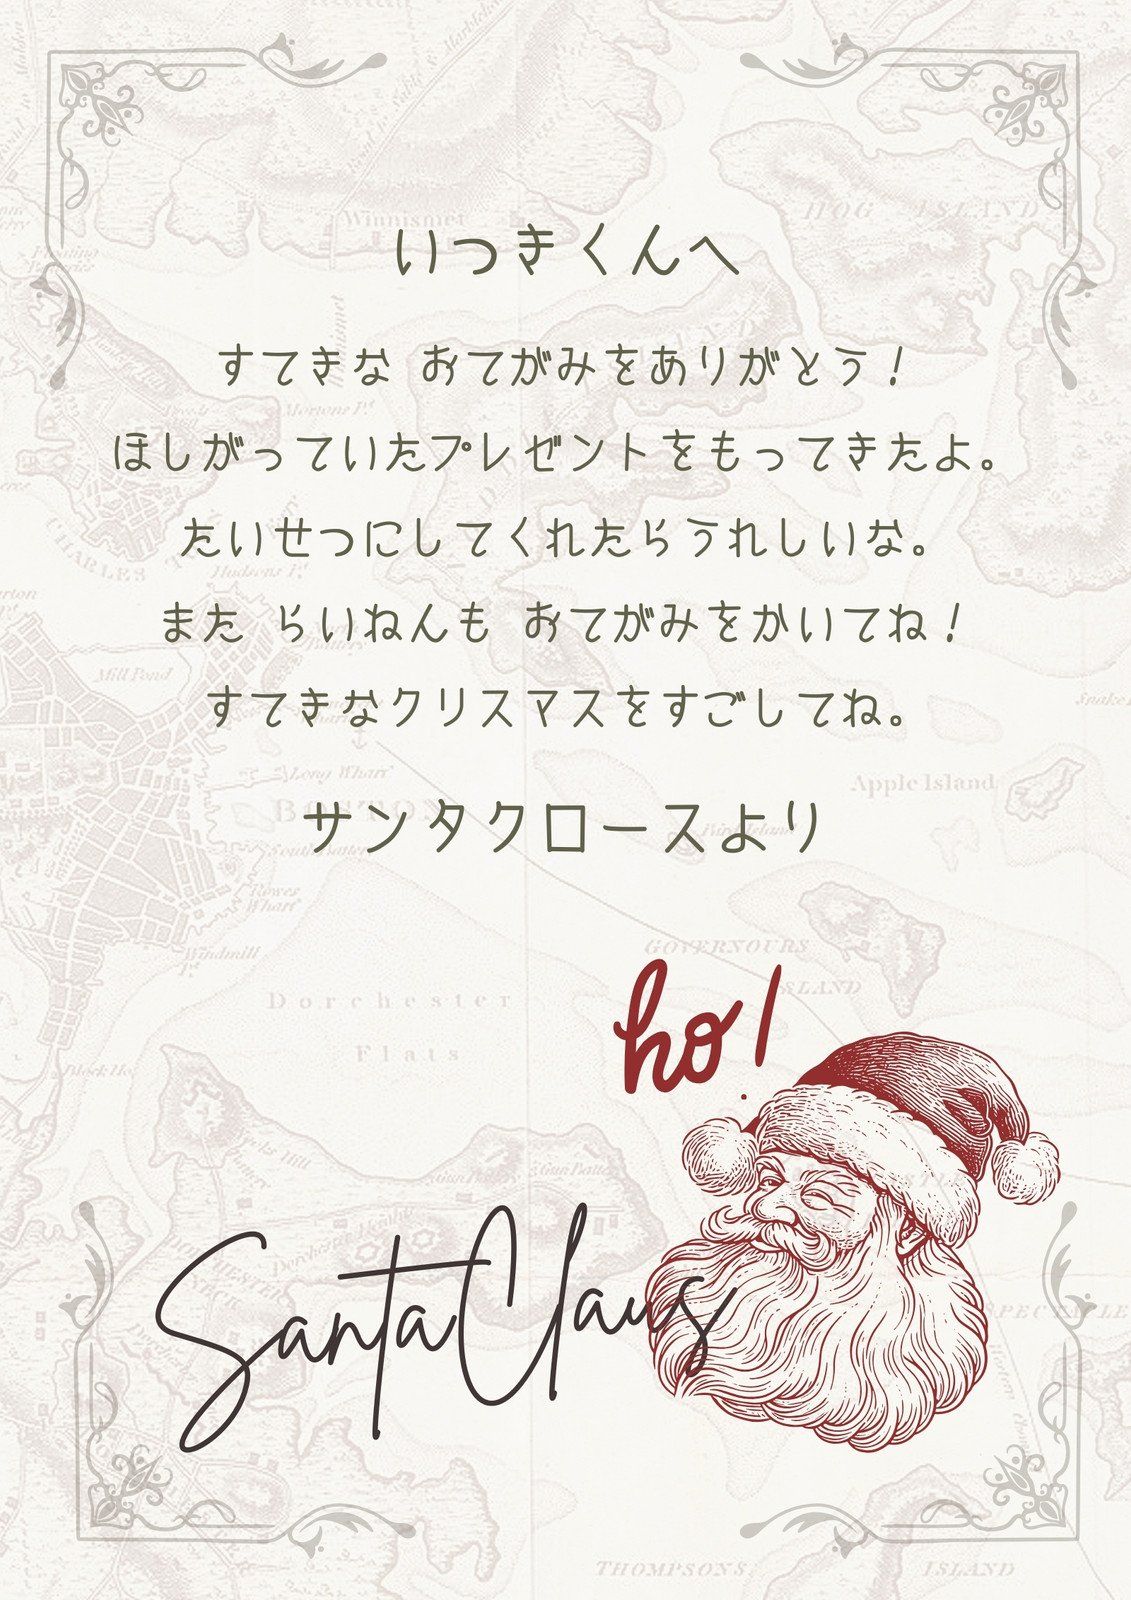 Winnismet
HOG ISLAND
いつきくんへ
すてきな おてがみをありがとう！
ほしがっていたプレゼントをもってきたよ。
たいせつにしてくれたらうれしいな。
また らいねんも おてがみをかいてね！
Mill Pond
すてきなクリスマスをすごしてね。
Long Wharf
Apple Island
BOSTON
サンタクロースより
Rowes
Wharf
Windmill
Pt.
GOVERNOURS
ISLAND
Dorchester
Flats
ho!
Santa Claus
THOMPSONS ISLAND